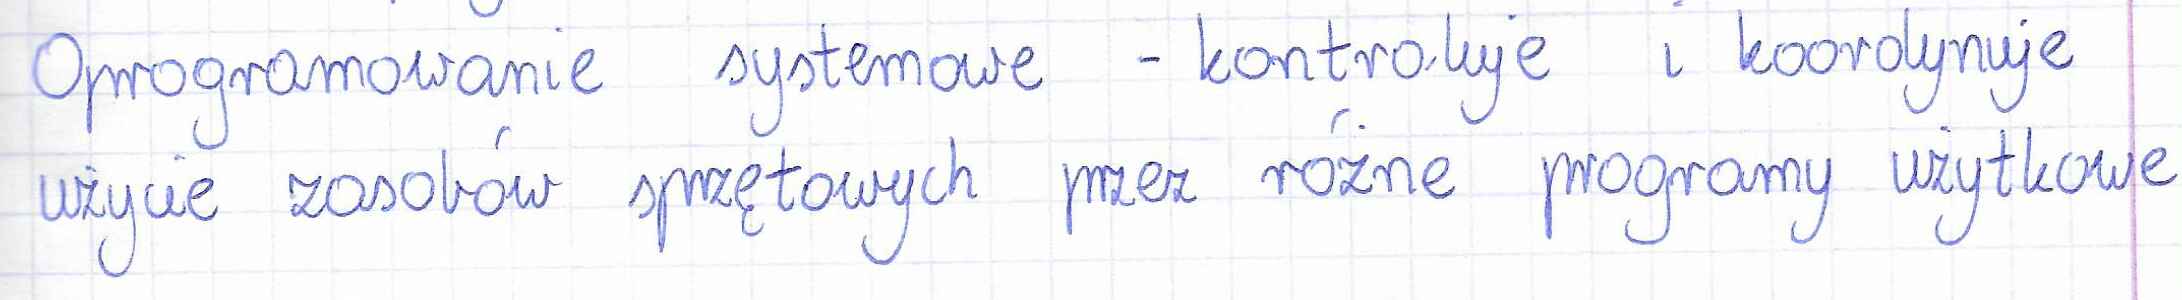 Oprogramowanie systemowe - kontroluje i koordynuje
użycie zasobów sprzętowych przez różne programy użytkowe